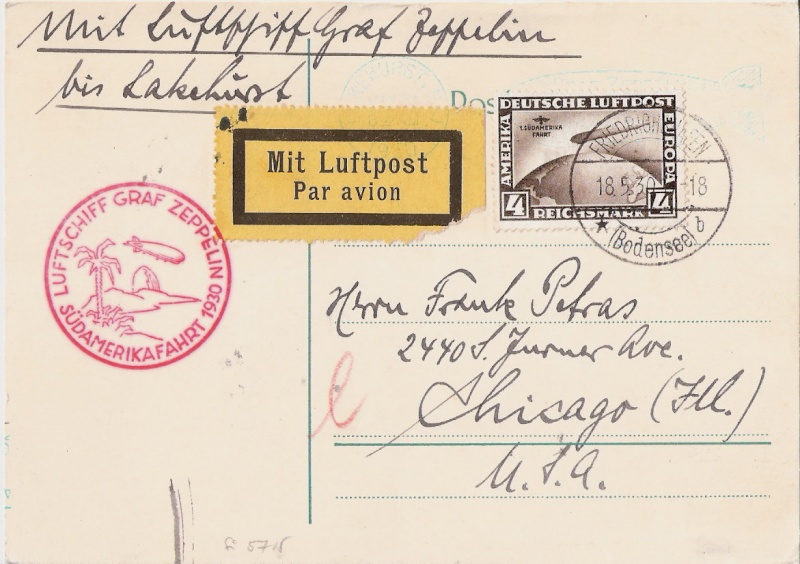 Mit Luftschiff Graf Zeppelin
bis Lakehurst
Mit Luftpost
Par avion
DEUTSCHE LUFTPOST
1. SÜDAMERIKA
FAHRT
AMERIKA
EUROPA
4 REICHSMARK 4
FRIEDRICHSHAFEN
18.5.30 -18
(Bodensee) b
LUFTSCHIFF GRAF ZEPPELIN
SÜDAMERIKAFAHRT 1930
Herrn Frank Petras
2440 S. Turner Ave.
Chicago (Ill.)
U.S.A.